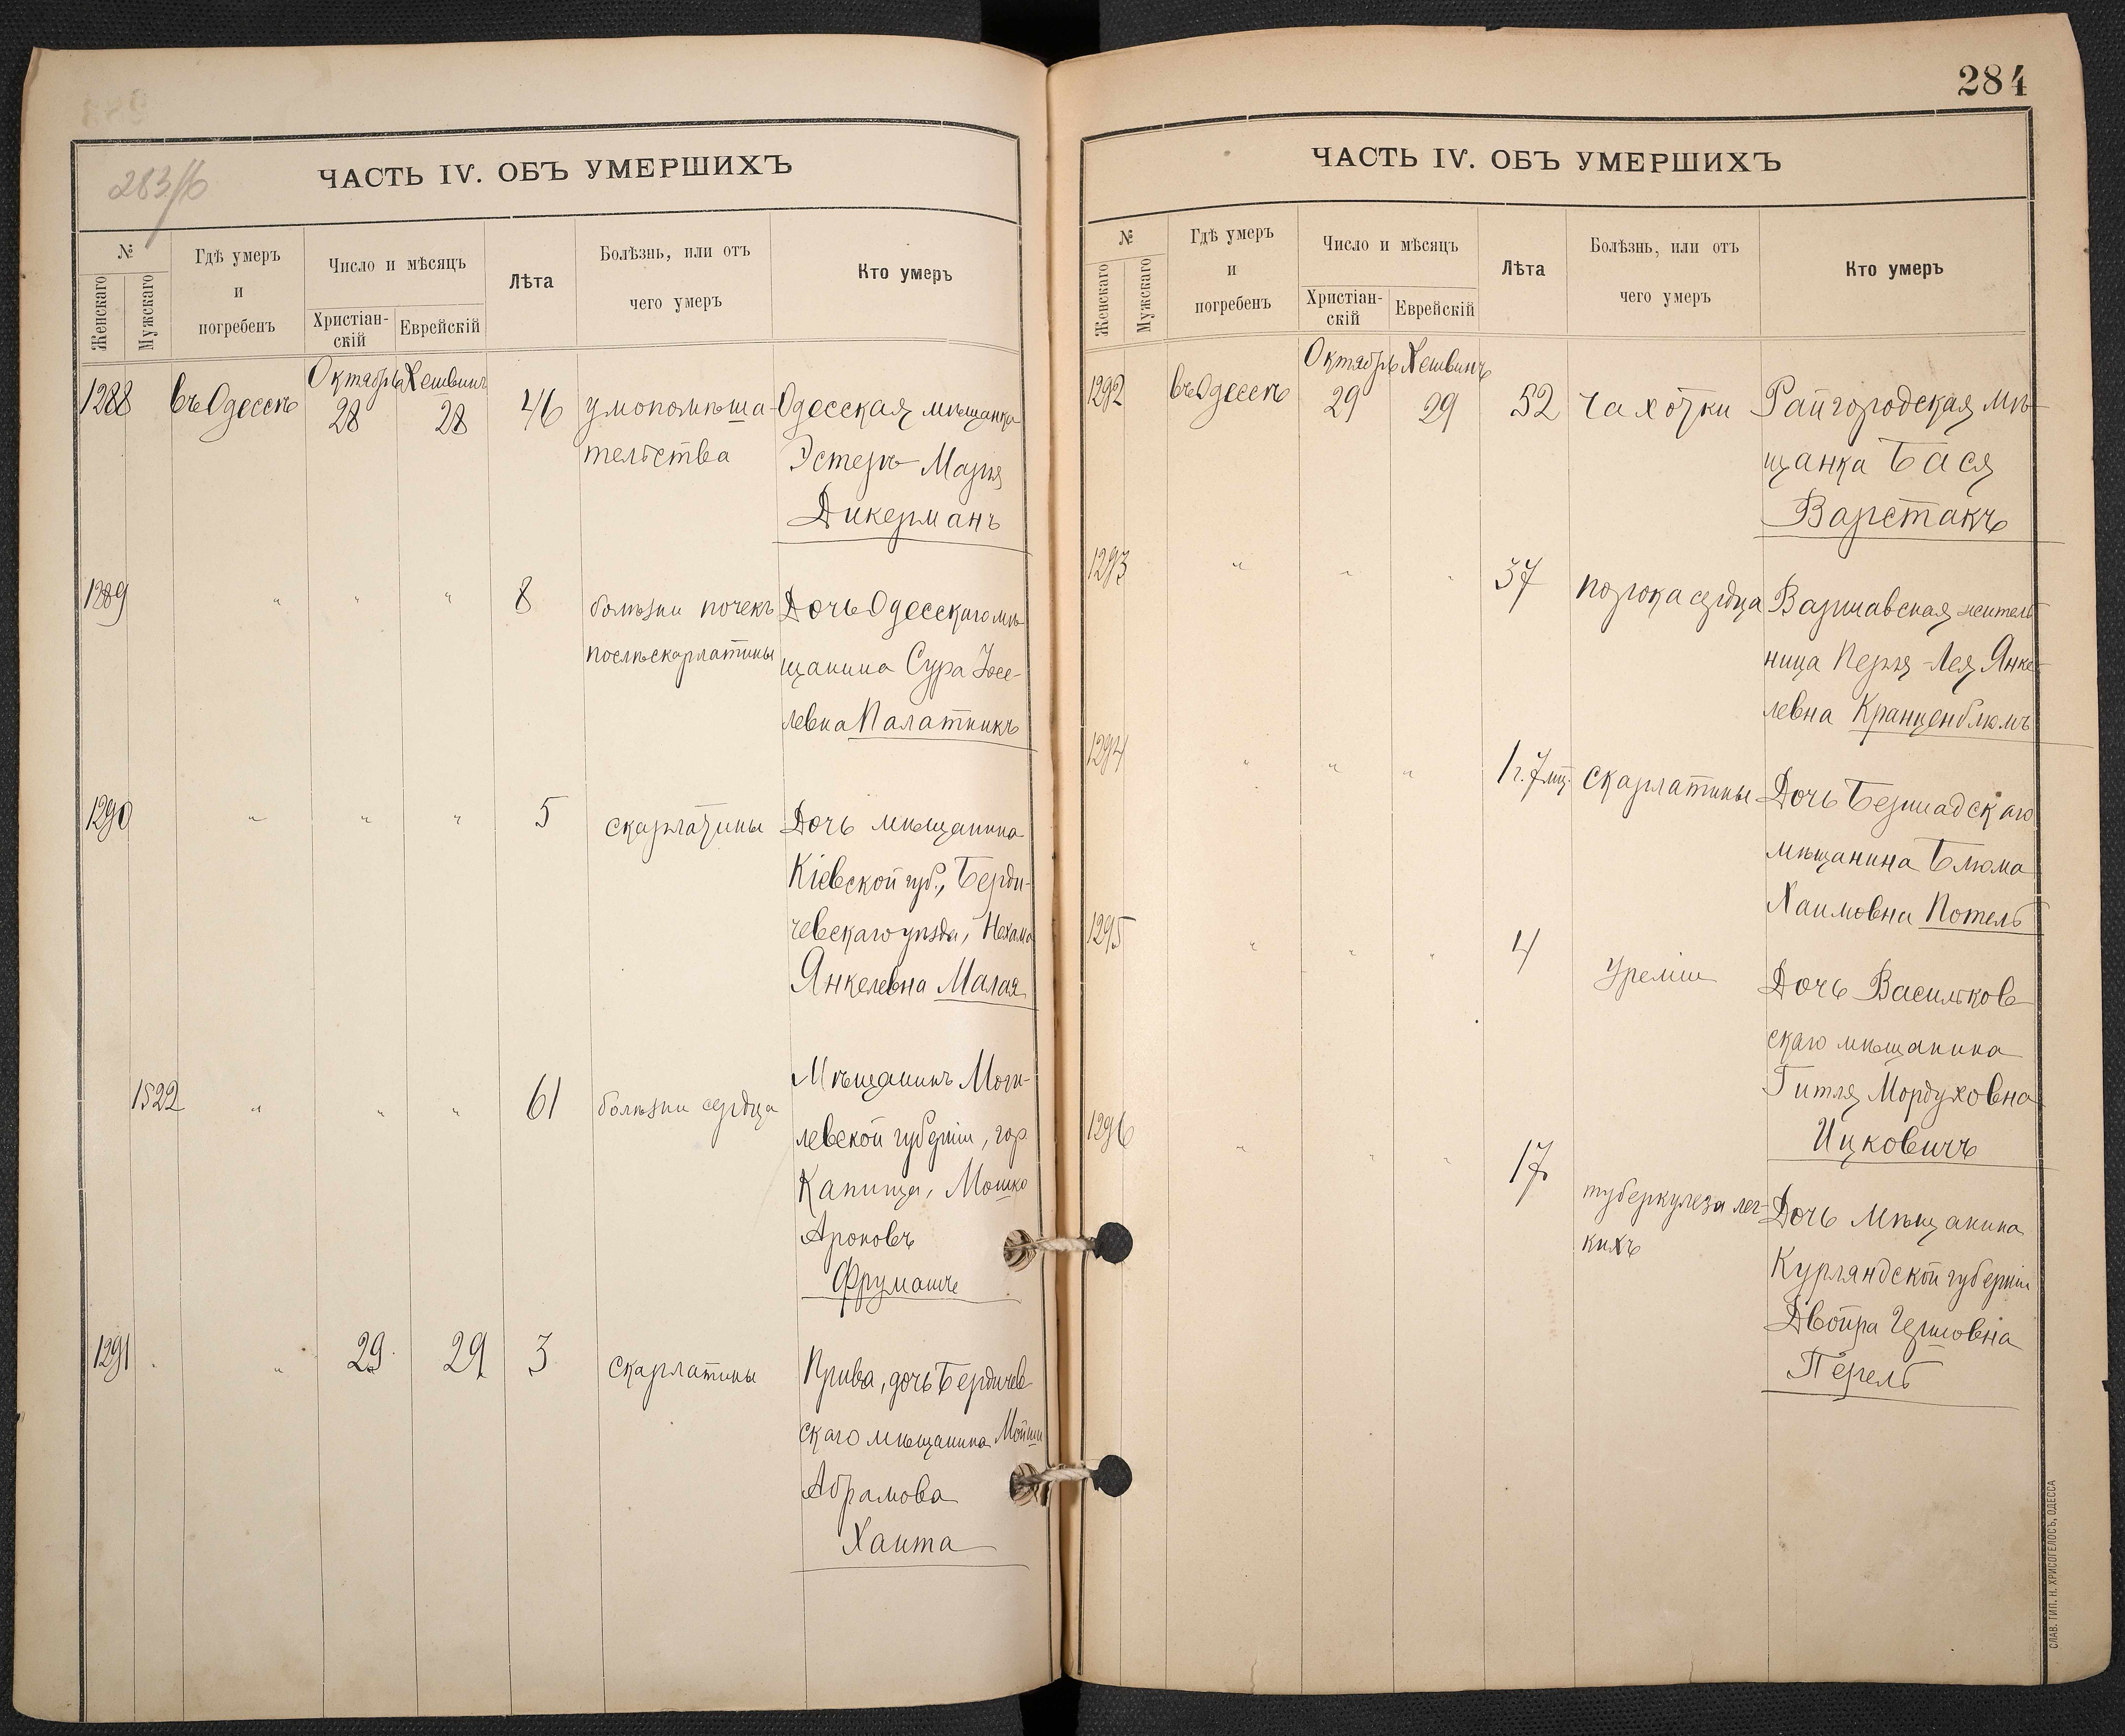 283/б
ЧАСТЬ IV. ОБЪ УМЕРШИХЪ
№
Женскаго
Мужскаго
Гдѣ умеръ
и
погребенъ
Число и мѣсяцъ
Христіан-
скій
Еврейскій
Лѣта
Болѣзнь, или отъ
чего умеръ
Кто умеръ
Октябрь Хешвинъ
1288 въ Одессѣ 28 28 46 умопомѣша- Одесская мѣщанка
тельства Эстеръ Марія
Дикерманъ
1289 " " " 8 болѣзни почекъ Дочь Одесскаго мѣ-
послѣ скарлатины щанина Сура Іосе-
левна Палатникъ
1290 " " " 5 скарлатины Дочь мѣщанина
Кіевской губ., Берди-
чевскаго уѣзда, Нехама
Янкелевна Малая
1522 " " " 61 болѣзни сердца Мѣщанинъ Моги-
левской губерніи, гор.
Капища, Мошко
Ароновъ
Фруманъ
1291 " 29 29 3 Скарлатины Прива, дочь Бердичев-
скаго мѣщанина Мойши
Абрамова
Хаита
284
ЧАСТЬ IV. ОБЪ УМЕРШИХЪ
№
Женскаго
Мужскаго
Гдѣ умеръ
и
погребенъ
Число и мѣсяцъ
Христіан-
скій
Еврейскій
Лѣта
Болѣзнь, или отъ
чего умеръ
Кто умеръ
Октябрь Хешвинъ
1292 въ Одессѣ 29 29 52 чахотки Райгородская мѣ-
щанка Бася
Варстакъ
1293 " " " 37 порока сердца Варшавская житель-
ница Перля-Лея Янке-
левна Кранценблюмъ
1294 " " " 1 г. 7 мц. скарлатины Дочь Бершадскаго
мѣщанина Блюма
Хаимовна Потель
1295 " " " 4 Уреміи Дочь Васильков-
скаго мѣщанина
Гитля Мордуховна
Ицковичъ
1296 " " " 17 туберкулеза лег- Дочь мѣщанина
кихъ Курляндской губерніи
Двойра Гершовна
Перель
СЛАВ. ТИП. Н. ХРИСОГЕЛОСЪ, ОДЕССА